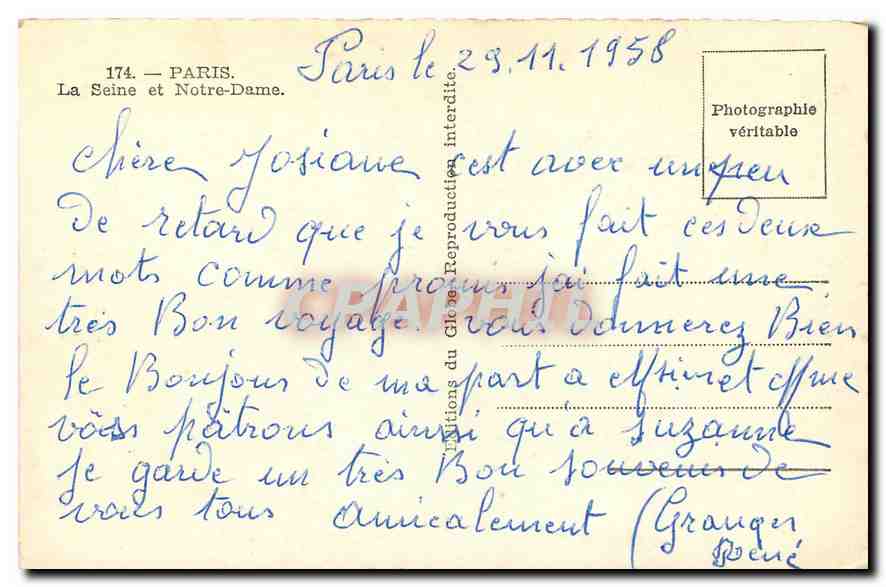 174. — PARIS.
La Seine et Notre-Dame.
Paris le 29.11.1958
Photographie
véritable
Editions du Globe. Reproduction interdite.
chère Josiane c'est avec un peu
de retard que je vous fait ces deux
mots comme promis j'ai fait une
très Bon voyage. vous donnerez Bien
le Bonjour de ma part a Msieur et Mme
vos pâtrons ainsi qu'a suzanne
je garde un très Bon souvenir de
vous tous amicalement (Granger
René